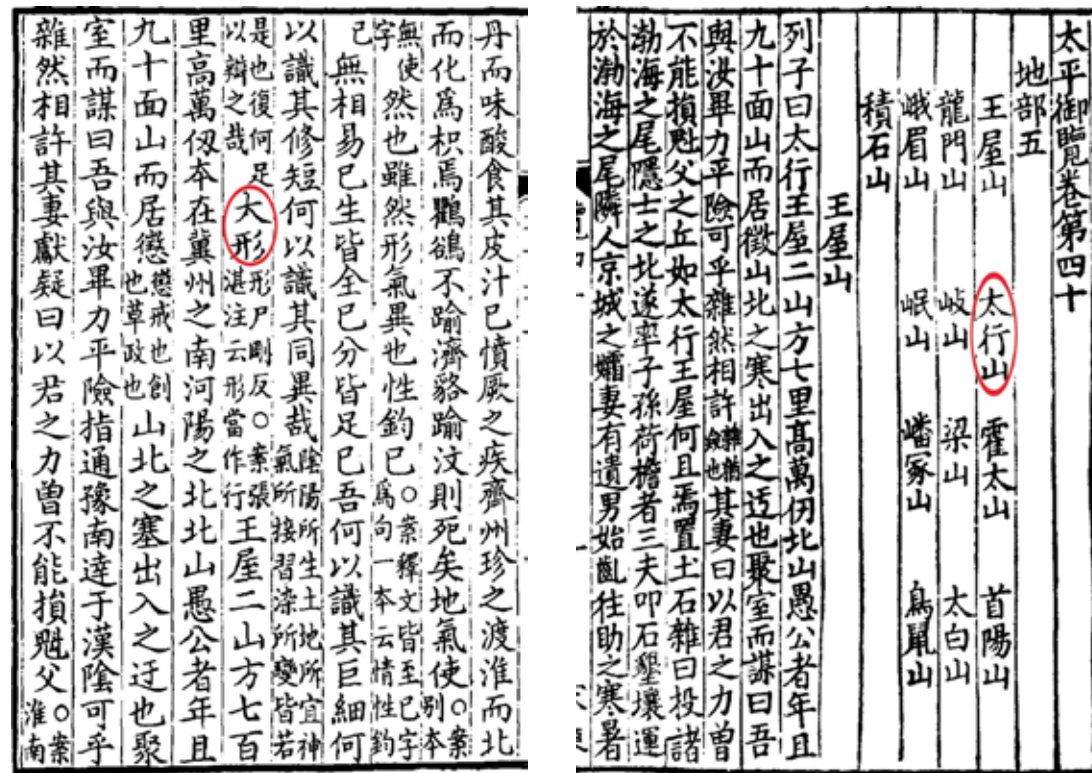 太平御覽卷第四十
地部五
王屋山 太行山 霍太山 首陽山
龍門山 岐山 梁山 太白山
峨眉山 岷山 嶓冢山 鳥鼠山
積石山
王屋山
列子曰太行王屋二山方七里髙萬仞北山愚公者年且
九十面山而居徵山北之寒出入之迃也聚室而謀曰吾
與汝畢力平險可乎雜然相許雜猶僉也其妻曰以君之力曽
不能損魁父之丘如太行王屋何且焉置土石雜曰投諸
渤海之尾隱士之北遂率子孫荷檐者三夫叩石墾壤運
於渤海之尾隣人京城之孀妻有遺男始齓徃助之寒暑
丹而味酸食其皮汁已憤厥之疾齊州珍之渡淮而北
而化爲枳焉鸜鵒不踰濟貉踰汶則死矣地氣使○案別本
無使字然也雖然形氣異也性鈞已○案釋文皆至已字爲句一本云情性鈞
已無相易已生皆全已分皆足已吾何以識其巨細何
以識其修短何以識其同異哉陰陽所生土地所宜神氣所接習染所變皆若
是也復何足以辯之哉大形形戸剛反○案張湛注云形當作行王屋二山方七百
里高萬仞本在冀州之南河陽之北北山愚公者年且
九十面山而居懲懲戒也創也草政也山北之塞出入之迂也聚
室而謀曰吾與汝畢力平險指通豫南達于漢陰可乎
雜然相許其妻獻疑曰以君之力曽不能損魁父○案淮南